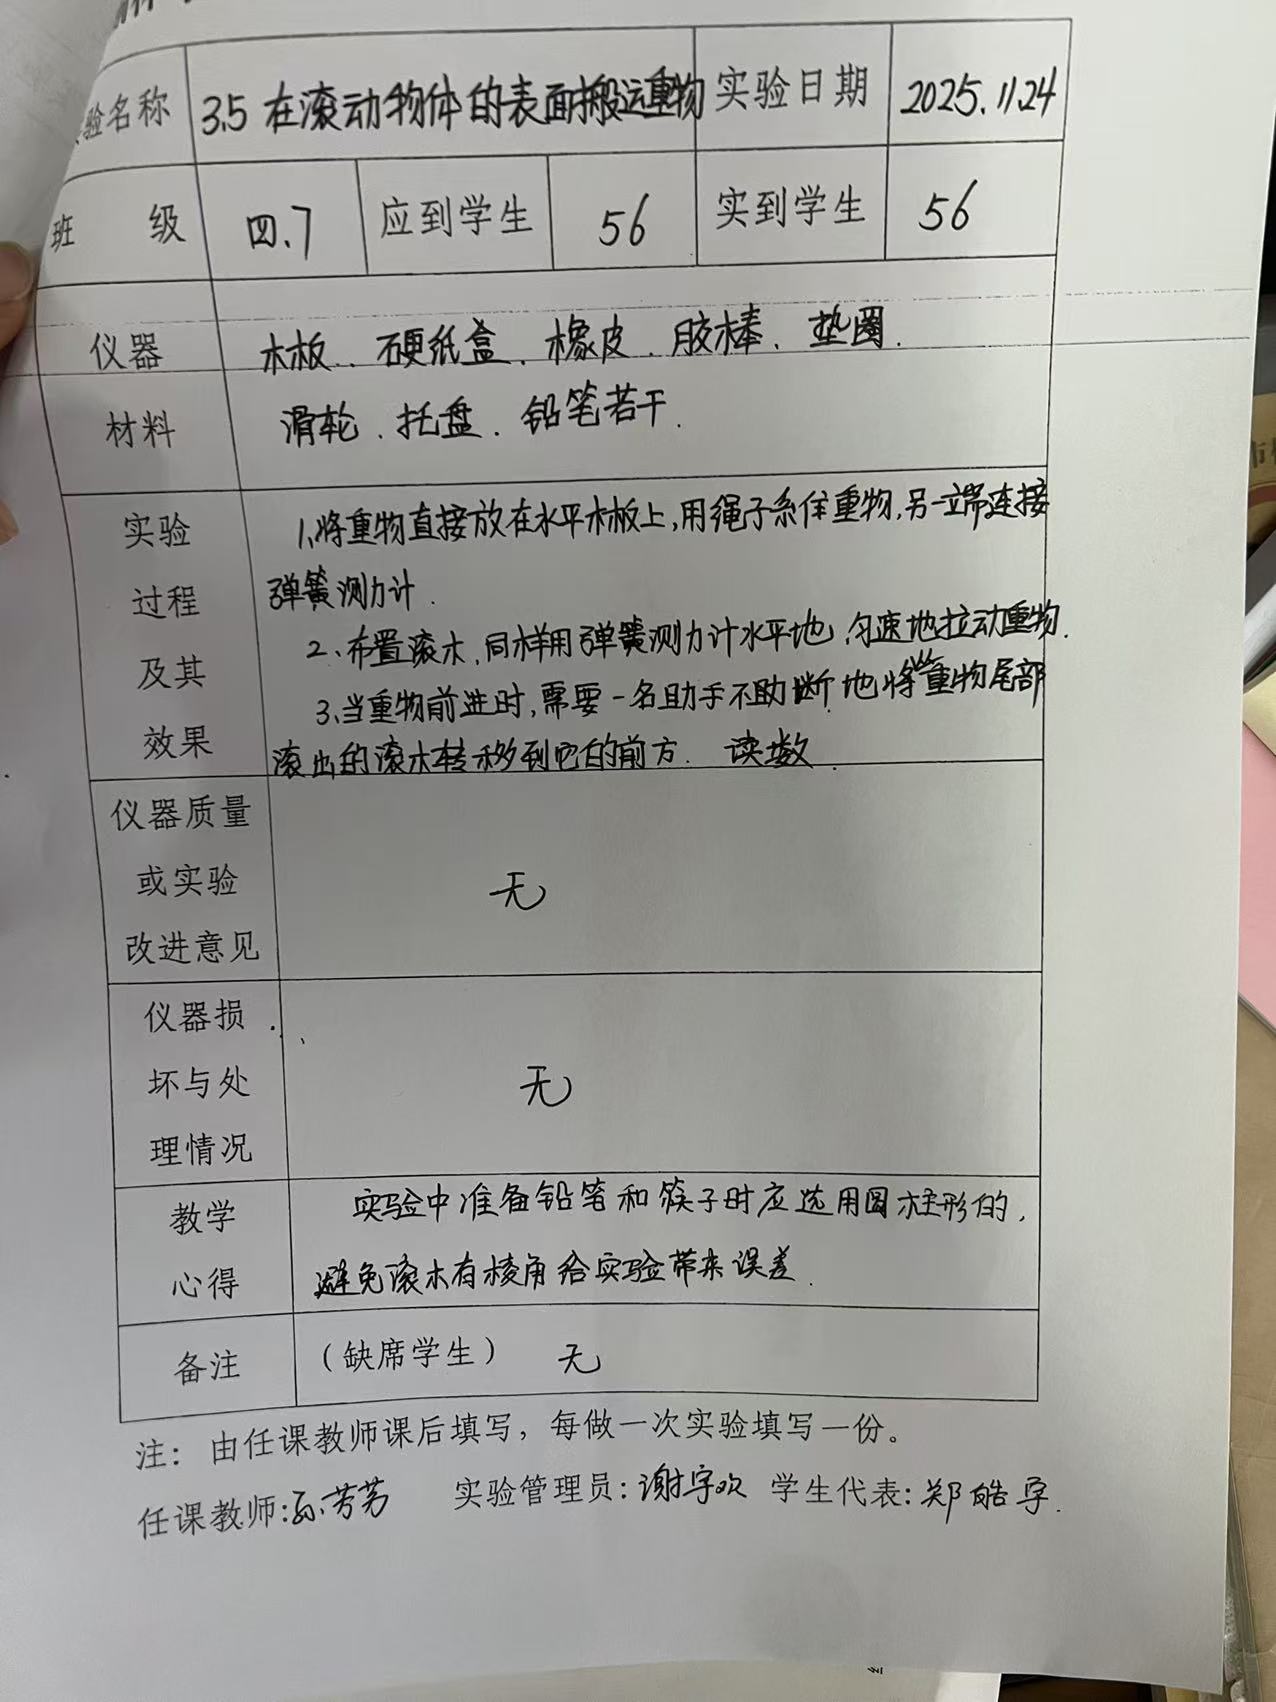 验名称 3.5 在滚动物体的表面搬运重物 实验日期 2025.11.24
班 级 四.7 应到学生 56 实到学生 56
仪器 木板、硬纸盒、橡皮、胶棒、垫圈.
材料 滑轮、托盘、铅笔若干.
实验 1、将重物直接放在水平木板上,用绳子系住重物,另一端连接
过程 弹簧测力计.
2、布置滚木,同样用弹簧测力计水平地,匀速地拉动重物.
及其 3、当重物前进时,需要一名助手不助断地将重物尾部
效果 滚出的滚木转移到它的前方. 读数.
仪器质量
或实验 无
改进意见
仪器损
坏与处 无
理情况
教学 实验中准备铅笔和筷子时应选用圆柱形的,
心得 避免滚木有棱角给实验带来误差.
备注 (缺席学生) 无
注: 由任课教师课后填写,每做一次实验填写一份。
任课教师: 孙芳芳 实验管理员: 谢宇欢 学生代表: 郑皓宇.